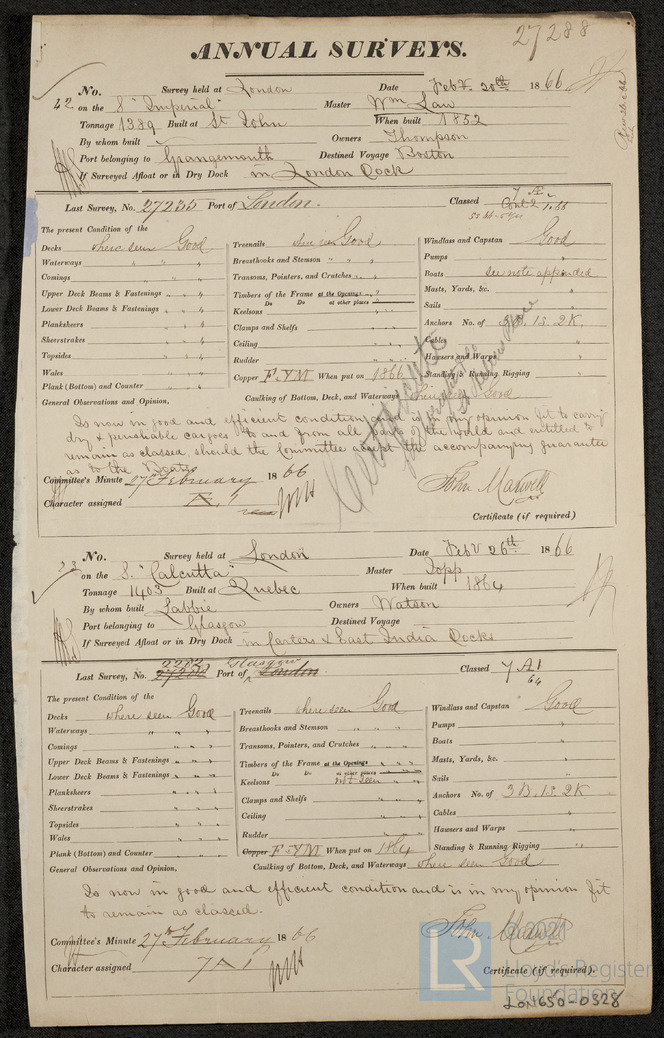 27288
ANNUAL SURVEYS.
No. Survey held at London Date Feb.y 20th 1866
42 on the S "Imperial" Master Wm Law
Tonnage 1389 Built at St John When built 1852
By whom built Owners Thompson
Port belonging to Grangemouth Destined Voyage Boston
If Surveyed Afloat or in Dry Dock in London Dock
Last Survey, No. 27233 Port of London. Classed 7 Æ 1
Cont2 1.66
The present Condition of the
Decks where seen Good Treenails where seen Good Windlass and Capstan Good
Waterways " " " Breasthooks and Stemson " " " Pumps "
Comings " " " Transoms, Pointers, and Crutches " " Boats see note appended
Upper Deck Beams & Fastenings " " " Timbers of the Frame at the Openings " " Masts, Yards, &c. "
Do Do at other places
Lower Deck Beams & Fastenings " " " Keelsons Sails "
Planksheers " " " Clamps and Shelfs " " " Anchors No. of 3B. 1S. 2K.
Sheerstrakes " " " Ceiling " " " Cables "
Topsides " " " Rudder " " " Hawsers and Warps "
Wales " " " Copper F.YM When put on 1866 Standing & Running Rigging "
Plank (Bottom) and Counter " " " Caulking of Bottom, Deck, and Waterways where seen Good
General Observations and Opinion,
Is now in good and efficient condition and is in my opinion fit to carry
dry & perishable cargoes to and from all parts of the world and entitled to
remain as classed should the Committee accept the accompanying guarantee
as to the Boats
Certificate
Committee's Minute 27 February 1866 John Maxwell
Character assigned Æ 1 Certificate (if required)
No. Survey held at London Date Feb.y 26th 1866
on the S. "Calcutta" Master Topp
Tonnage 1403 Built at Quebec When built 1864
By whom built Labbie Owners Watson
Port belonging to Glasgow Destined Voyage
If Surveyed Afloat or in Dry Dock in Carters & East India Docks
2282 Glasgow
Last Survey, No. Port of London Classed 7 A1
64
The present Condition of the
Decks where seen Good Treenails where seen Good Windlass and Capstan Good
Waterways " " " Breasthooks and Stemson " " " Pumps "
Comings " " " Transoms, Pointers, and Crutches " " " Boats "
Upper Deck Beams & Fastenings " " " Timbers of the Frame at the Openings " " " Masts, Yards, &c. "
Do Do at other places
Lower Deck Beams & Fastenings " " " Keelsons not seen " " Sails "
Planksheers " " " Clamps and Shelfs " " " Anchors No. of 3B. 1S. 2K
Sheerstrakes " " " Ceiling " " " Cables "
Topsides " " " Rudder " " " Hawsers and Warps "
Wales " " " Copper F.YM When put on 1864 Standing & Running Rigging "
Plank (Bottom) and Counter " " " Caulking of Bottom, Deck, and Waterways where seen Good
General Observations and Opinion,
Is now in good and efficient condition and is in my opinion fit
to remain as classed.
John Maxwell
Committee's Minute 27th February 1866
Character assigned 7 A 1 Certificate (if required).
LR Lloyd's Register
Foundation
LON650-0328